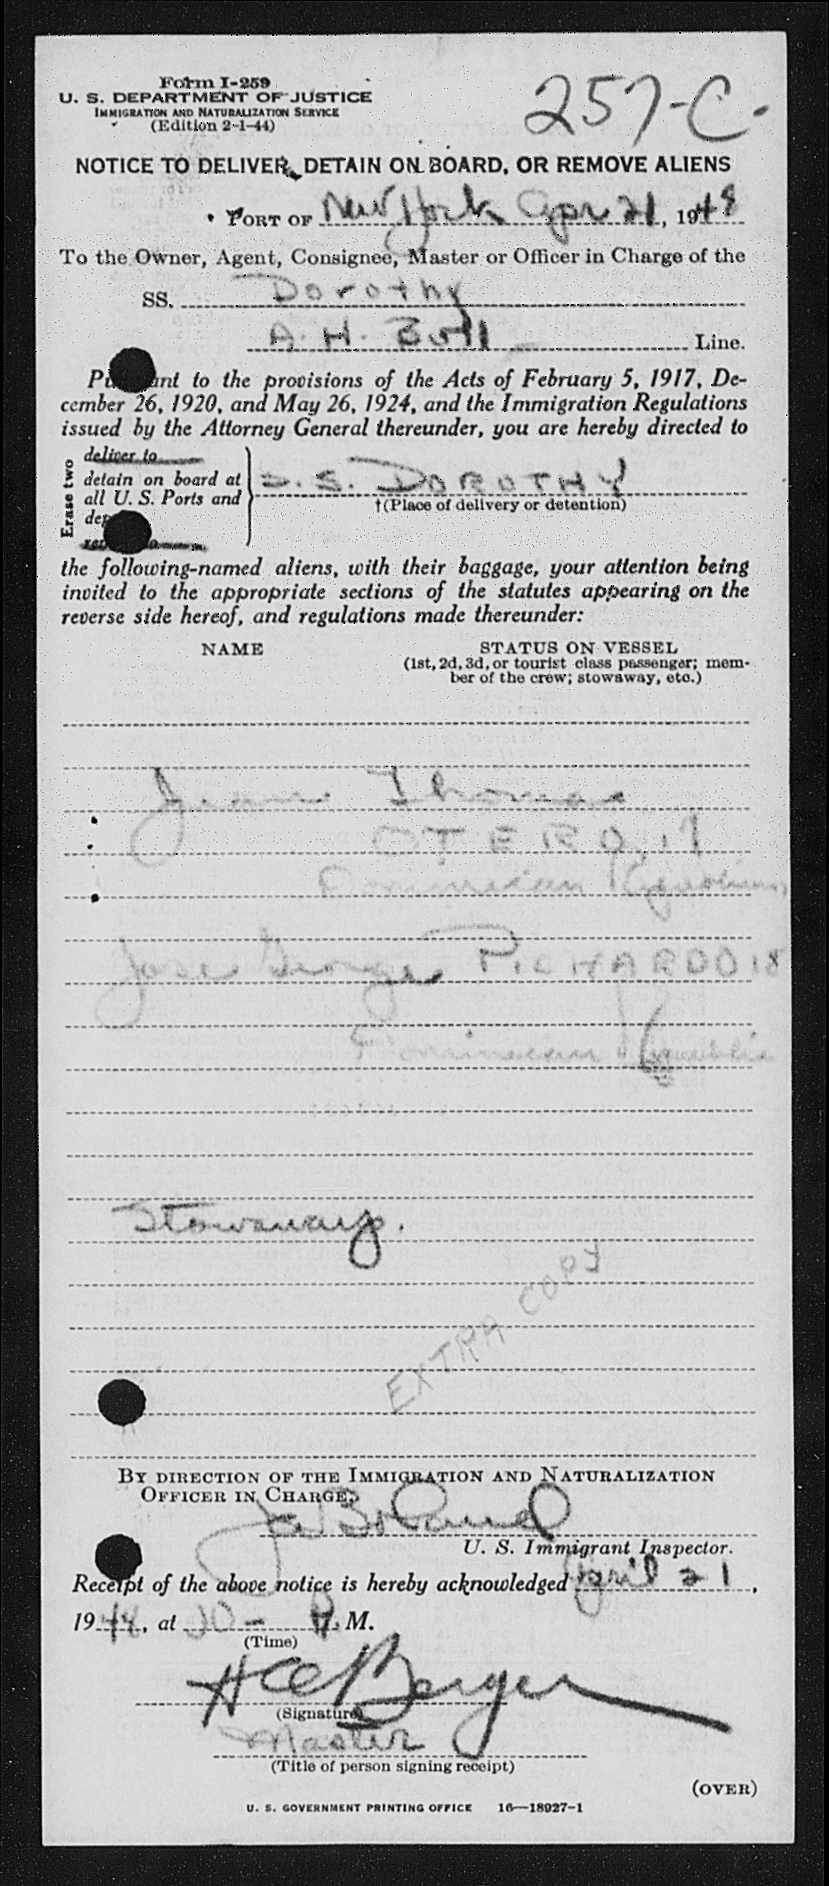 Form I-259
U. S. DEPARTMENT OF JUSTICE
IMMIGRATION AND NATURALIZATION SERVICE
(Edition 2-1-44)
257-C.
NOTICE TO DELIVER, DETAIN ON BOARD, OR REMOVE ALIENS
PORT OF New York Apr 21, 1948
To the Owner, Agent, Consignee, Master or Officer in Charge of the
SS. Dorothy
A. H. Bull Line.
Pursuant to the provisions of the Acts of February 5, 1917, De-
cember 26, 1920, and May 26, 1924, and the Immigration Regulations
issued by the Attorney General thereunder, you are hereby directed to
Erase two
deliver to
detain on board at
all U. S. Ports and
S.S. DOROTHY
†(Place of delivery or detention)
the following-named aliens, with their baggage, your attention being
invited to the appropriate sections of the statutes appearing on the
reverse side hereof, and regulations made thereunder:
NAME STATUS ON VESSEL
(1st, 2d, 3d, or tourist class passenger; mem-
ber of the crew; stowaway, etc.)
Thomas
OTERO, 19
Dominican Republic
Jose George PICHARDO 18
Dominican Republic
Stowaways.
EXTRA COPY
BY DIRECTION OF THE IMMIGRATION AND NATURALIZATION
OFFICER IN CHARGE,
U. S. Immigrant Inspector.
Receipt of the above notice is hereby acknowledged April 21,
1948, at 10 - M.
(Time)
Berger
(Signature)
Master
(Title of person signing receipt)
(OVER)
U. S. GOVERNMENT PRINTING OFFICE 16—18927-1